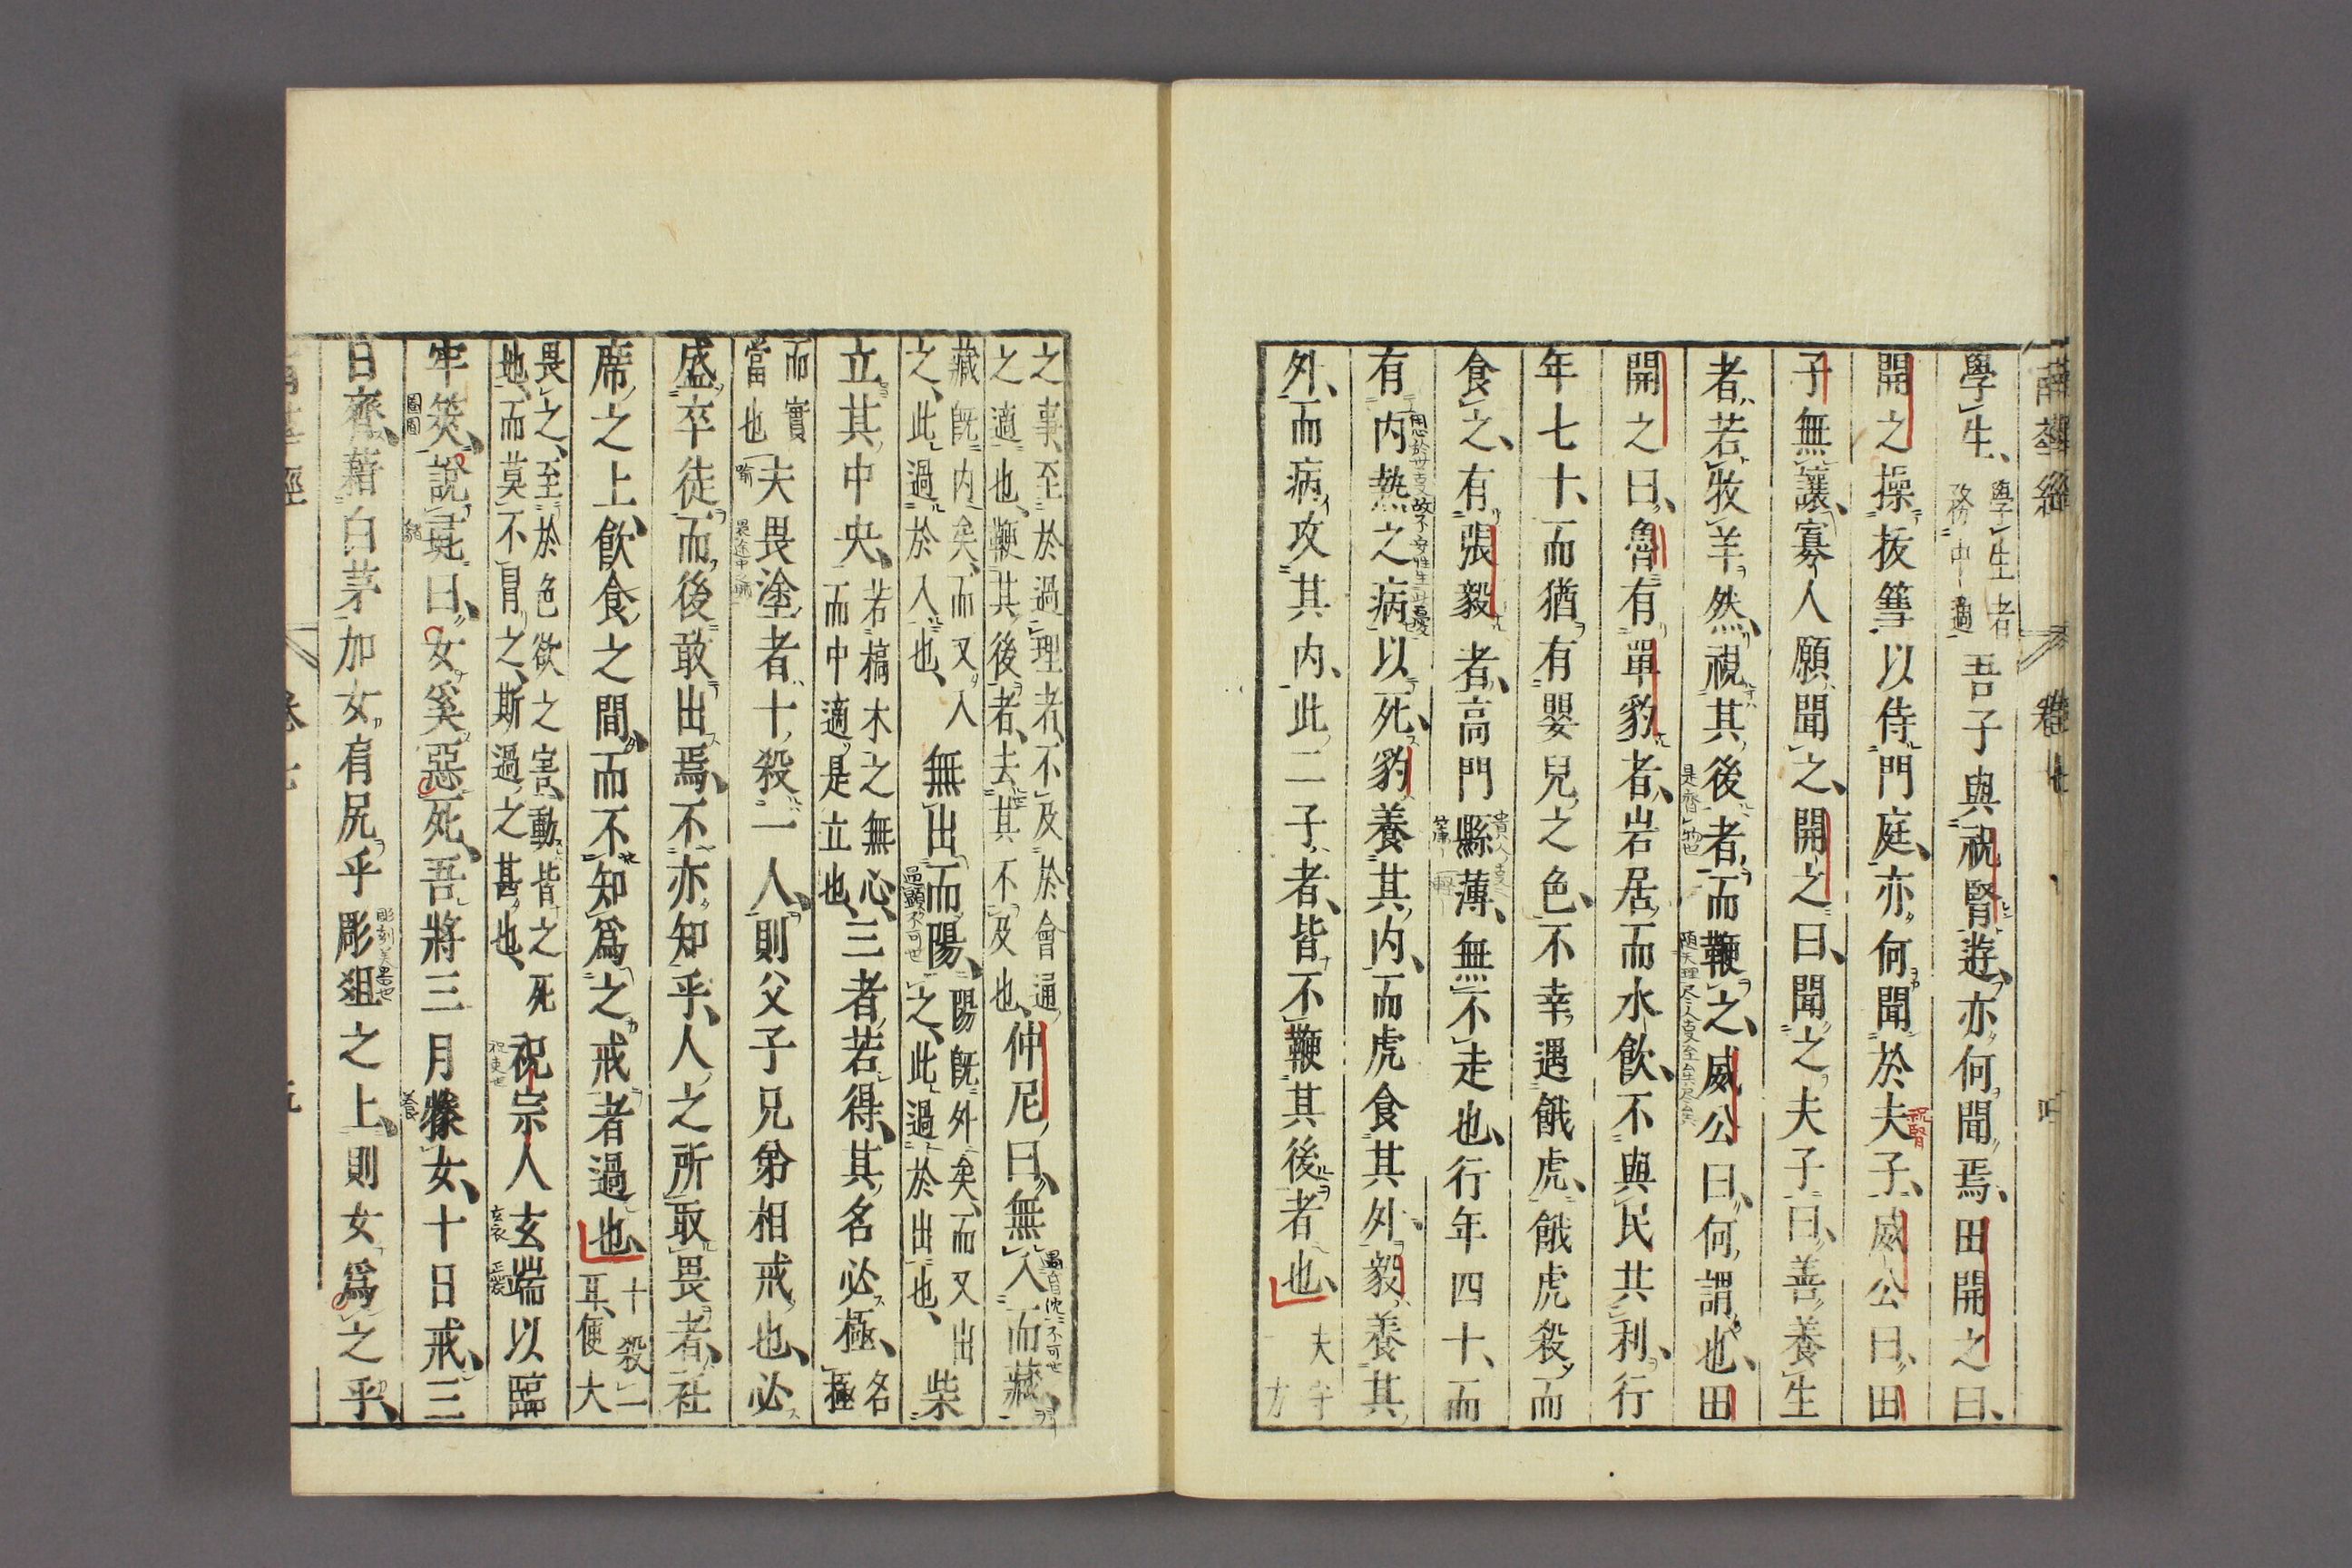 南華經 卷七
學生、學生者務中適吾子與祝腎遊、亦何聞焉、田開之曰、
開之操拔篲以侍門庭、亦何聞於夫子、威公曰、田
子無讓、寡人願聞之、開之曰、聞之夫子曰、善養生
者、若牧羊然、視其後者、而鞭之、威公曰、何謂也、田
開之曰、魯有單豹者、岩居而水飲、不與民共利、行
年七十、而猶有嬰兒之色、不幸遇餓虎、餓虎殺而
食之、有張毅者、高門縣薄、無不走也、行年四十、而
有內熱之病以死、豹養其內、而虎食其外、毅養其
外、而病攻其內、此二子者、皆不鞭其後者也、夫守方
之事、至於過理者、不及於會通
之適也、鞭其後者、去其不及也、仲尼曰、無入而藏、
藏既內矣、而又入
之、此過於入也、無出而陽、陽既外矣、而又出之、此過於出也、柴
立其中央、若槁木之無心、而中適是立也、三者若得、其名必極、名極
而實當也夫畏塗者、十殺一人、則父子兄弟相戒也、必
盛卒徒、而後敢出焉、不亦知乎、人之所取畏者、衽
席之上、飲食之間、而不知爲之戒者過也、十殺一耳、便大
畏之、至於色欲之害、動皆之死
地、而莫不冒之、斯過之甚也、祝宗人玄端以臨
牢筴、說彘曰、女奚惡死、吾將三月㹖女、十日戒、三
日齊、藉白茅、加女肩尻乎彫俎之上、則女爲之乎、